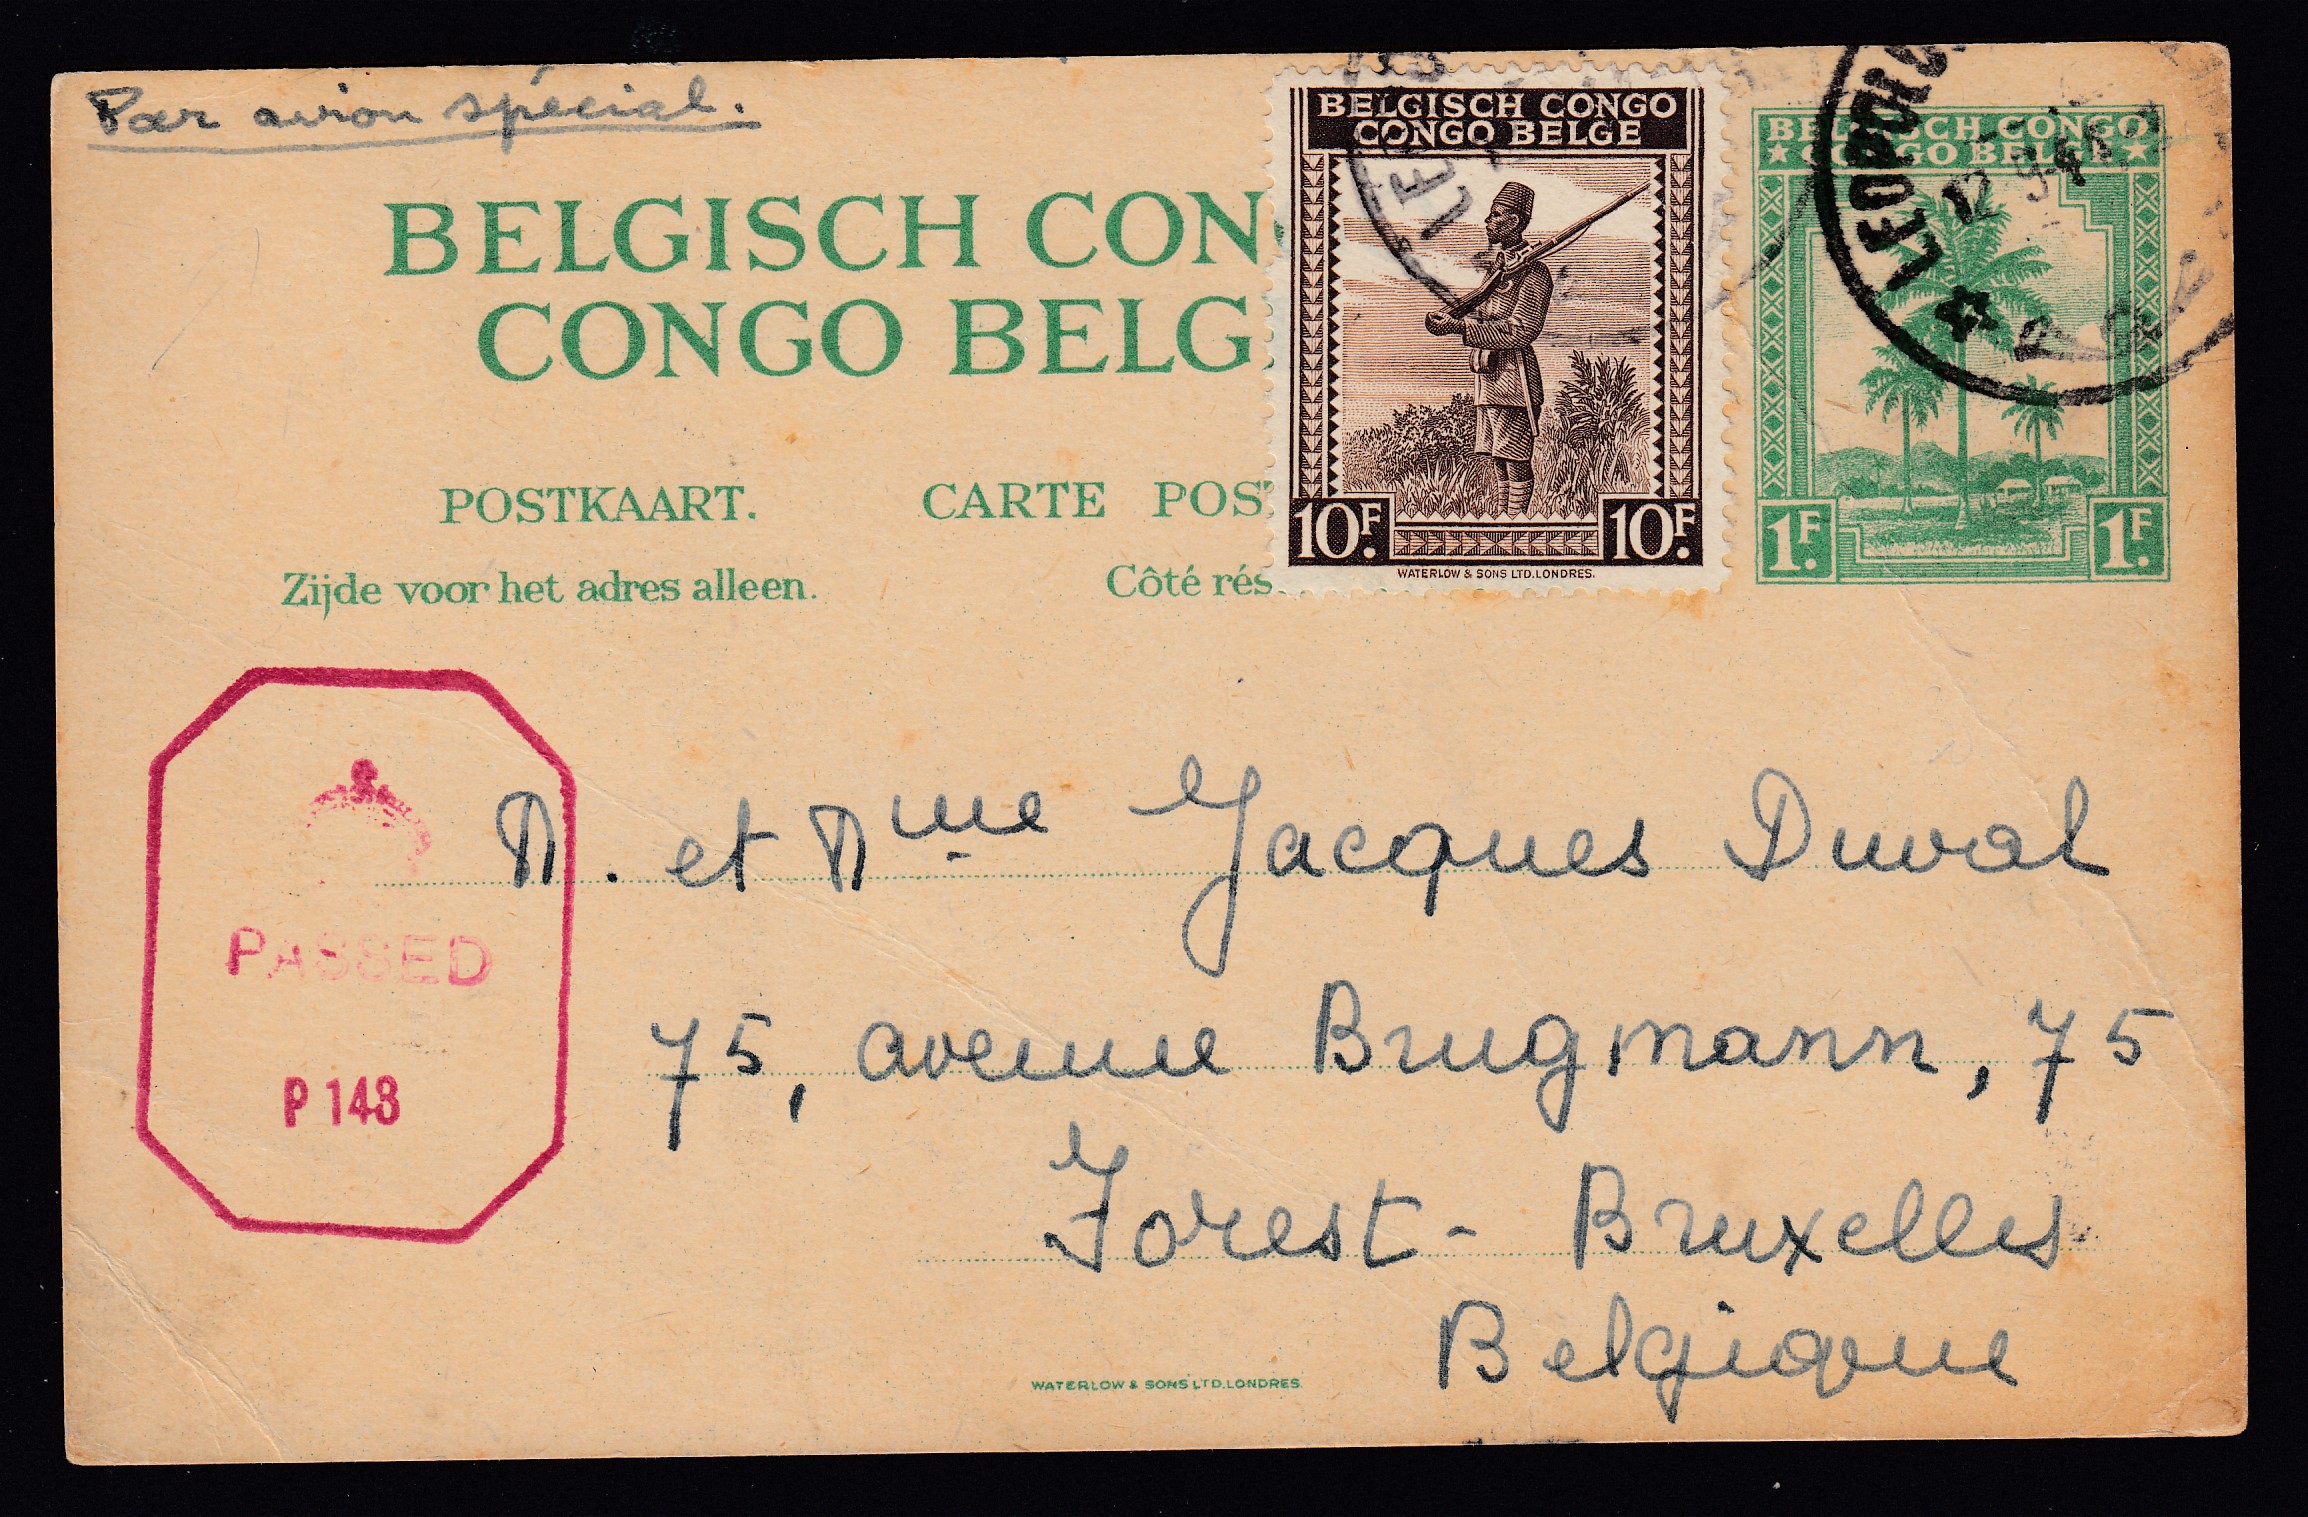 Par avion spécial.
BELGISCH CON
CONGO BELG
POSTKAART. CARTE POS
Zijde voor het adres alleen. Côté rés
BELGISCH CONGO
CONGO BELGE
10F. 10F.
WATERLOW & SONS LTD. LONDRES.
BELGISCH CONGO
★ CONGO BELGE ★
1F. 1F.
LEOPOLDV
12
PASSED
P 148
M. et Mme Jacques Duval
75, avenue Brugmann, 75
Forest - Bruxelles
Belgique
WATERLOW & SONS LTD. LONDRES.